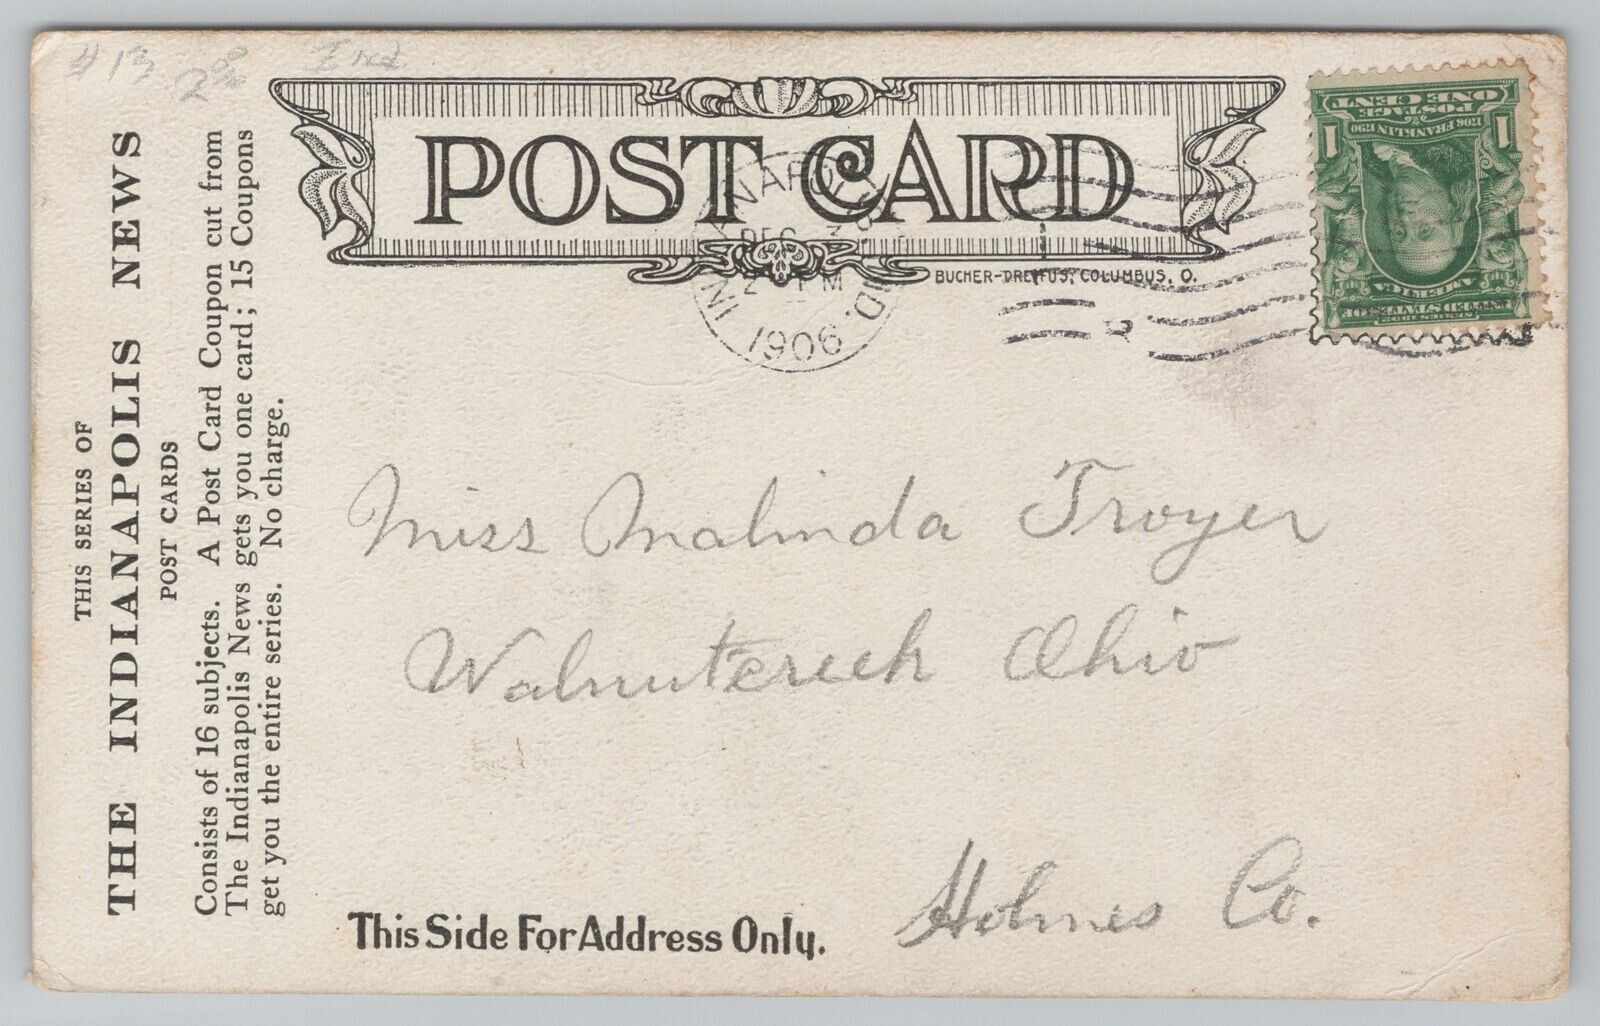 #13
Ind
THIS SERIES OF
THE INDIANAPOLIS NEWS
POST CARDS
Consists of 16 subjects. A Post Card Coupon cut from
The Indianapolis News gets you one card; 15 Coupons
get you the entire series. No charge.
POST CARD
BUCHER-DREYFUS, COLUMBUS, O.
DEC
PM
IND.
1906
1 1
POSTAGE
ONE CENT
1706 FRANKLIN 1790
SERIES 1902
UNITED STATES OF
AMERICA
Miss Malinda Troyer
Walnutcreek Ohio
Holmes Co.
This Side For Address Only.